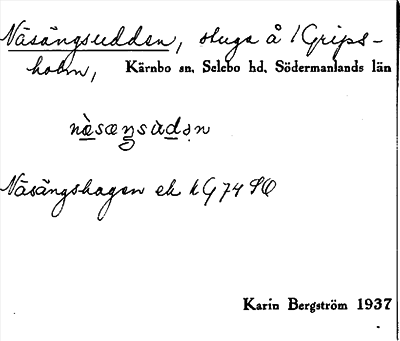 Näsängsudden, stuga å 1 Grips-
holm, Kärnbo sn. Selebo hd. Södermanlands län
næ̀sæŋsùdən
Näsängshagen ek kG 74 SO
Karin Bergström 1937